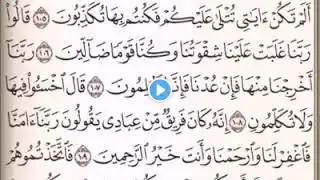 أَلَمْ تَكُنْ ءَايَٰتِى تُتْلَىٰ عَلَيْكُمْ فَكُنتُم بِهَا تُكَذِّبُونَ ١٠٥ قَالُوا۟
رَبَّنَا غَلَبَتْ عَلَيْنَا شِقْوَتُنَا وَكُنَّا قَوْمًا ضَآلِّينَ ١٠٦ رَبَّنَآ
أَخْرِجْنَا مِنْهَا فَإِنْ عُدْنَا فَإِنَّا ظَٰلِمُونَ ١٠٧ قَالَ ٱخْسَـُٔوا۟ فِيهَا
وَلَا تُكَلِّمُونِ ١٠٨ إِنَّهُۥ كَانَ فَرِيقٌ مِّنْ عِبَادِى يَقُولُونَ رَبَّنَآ ءَامَنَّا
فَٱغْفِرْ لَنَا وَٱرْحَمْنَا وَأَنتَ خَيْرُ ٱلرَّٰحِمِينَ ١٠٩ فَٱتَّخَذْتُمُوهُمْ